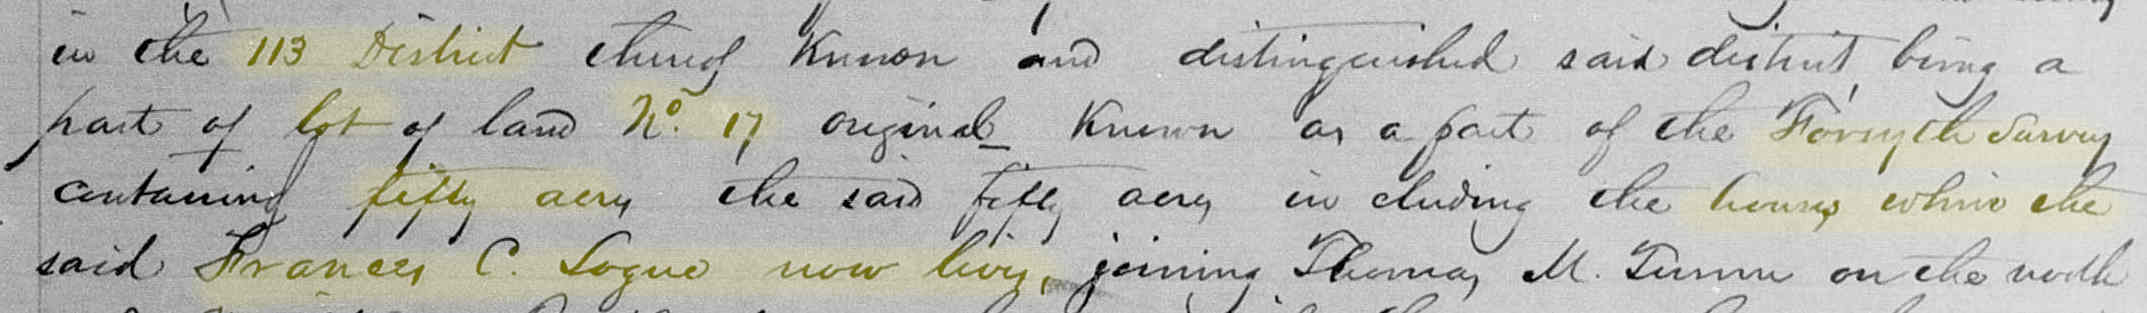 in the 113 District thereof Known and distinguished said district being a
part of lot of land No. 17 original Known as a part of the Forsyth Survey
containing fifty acres the said fifty acres in cluding the house where the
said Frances C. Logue now lives, joining Thomas M. Turner on the north